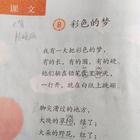 课文
8 彩色的梦
我有一大把彩色的梦，
有的长，有的圆，有的硬。
他们躺在铅笔盒里聊天，
一打开，就在白纸上跳蹦。
脚尖滑过的地方，
大块的草坪，绿了；
大朵的野花，红了；